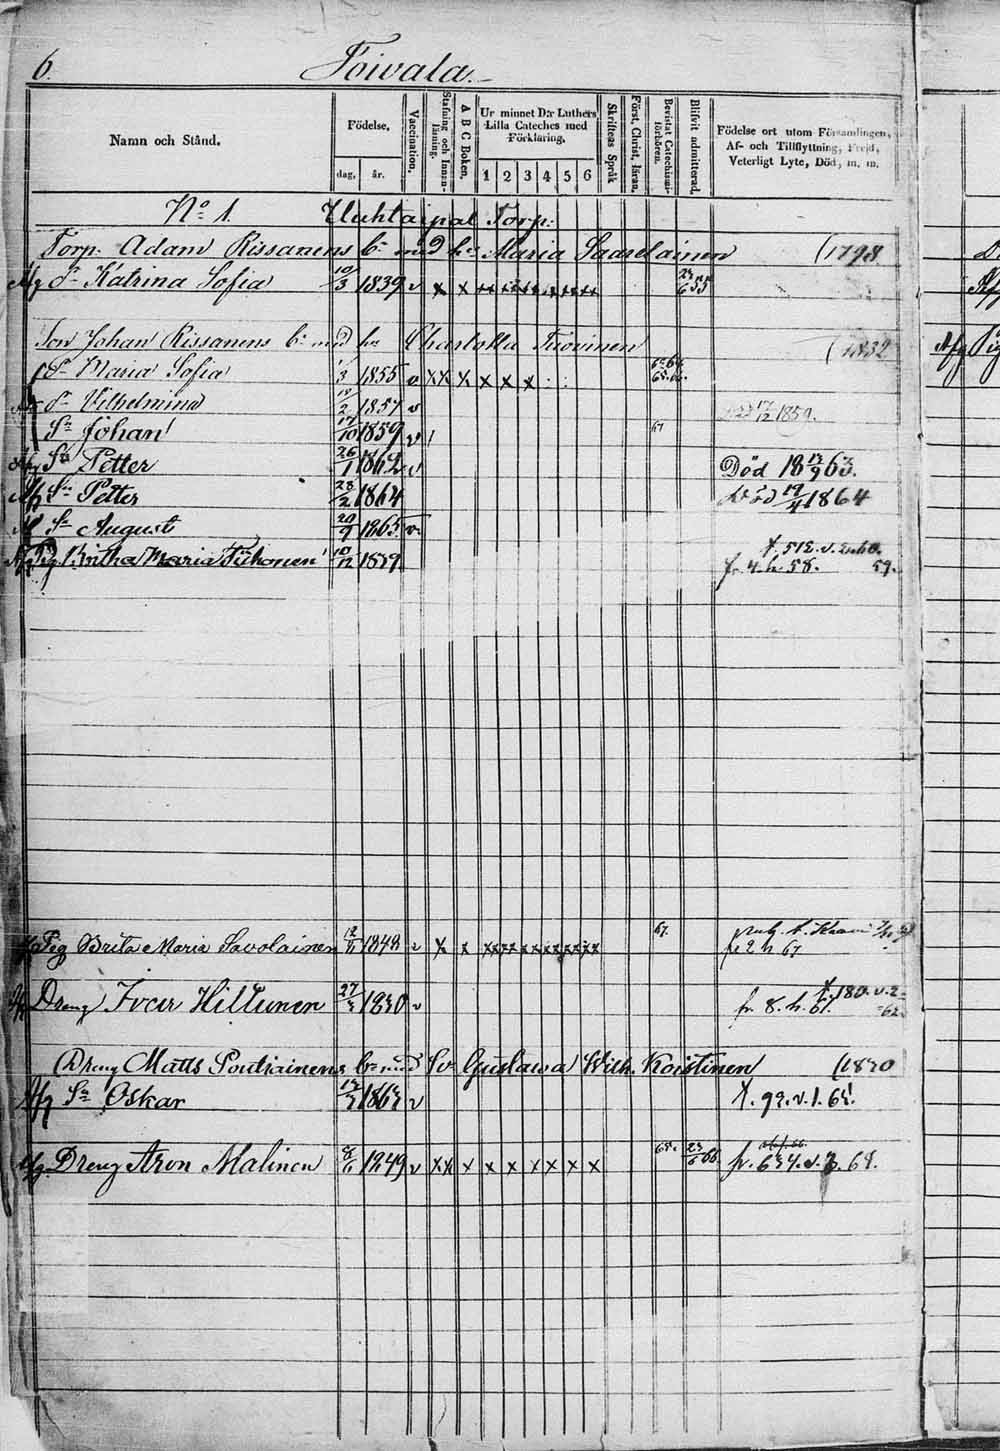 6. Toivala.
Namn och Stånd.
Födelse,
dag, år.
Vaccination.
Stafning och Innanläsning.
A B C Boken.
Ur minnet D:r Luthers Lilla Cateches med Förklaring.
1 2 3 4 5 6
Skriftens Språk
Först. Christ. läran.
Bevistat Catechismiförhören.
Blifvit admitterad.
Födelse ort utom Församlingen, Af- och Tillflyttning, Frejd, Veterligt Lyte, Död, m. m.
No 1. Uuhtaipal Torp:
Torp. Adam Rissanens b: med hu Maria Saarelainen (1798
Afg dr Katrina Sofia 10/3 1839 v x x 23/6 55
Son Johan Rissanens b: med hu Charlotta Tuovinen (1832
dr Maria Sofia 1/3 1855 v x x x x x x
dr Vilhelmina 1857 v 1859.
Sn Johan 17/10 1859 v 67
Sn Petter 26/1 1862 v Död 18 63.
Afg Sn Petter 28/2 1864 Död 19/4 1864
Sn August 20/9 1865 v
Afg Pig Britha Maria Tiihonen 10/12 1839 fr. 4. h. 58. 59.
Pig Brita Maria Savolainen 12/11 1848 v x x 67. fr 2 h 67
Dreng Ivar Hiltunen 27/3 1830 v fr. 8. h. 61. 180. v. 2 62.
Dreng Matts Poutiainens b: med Sv Gustava Wilh. Koistinen (1830
Afg Sn Oskar 1863 v
Afg. Dreng Aron Malinen 8/6 1849 v x x x x x x x x x 65. 23/6 66. fr. 634. v. 68.